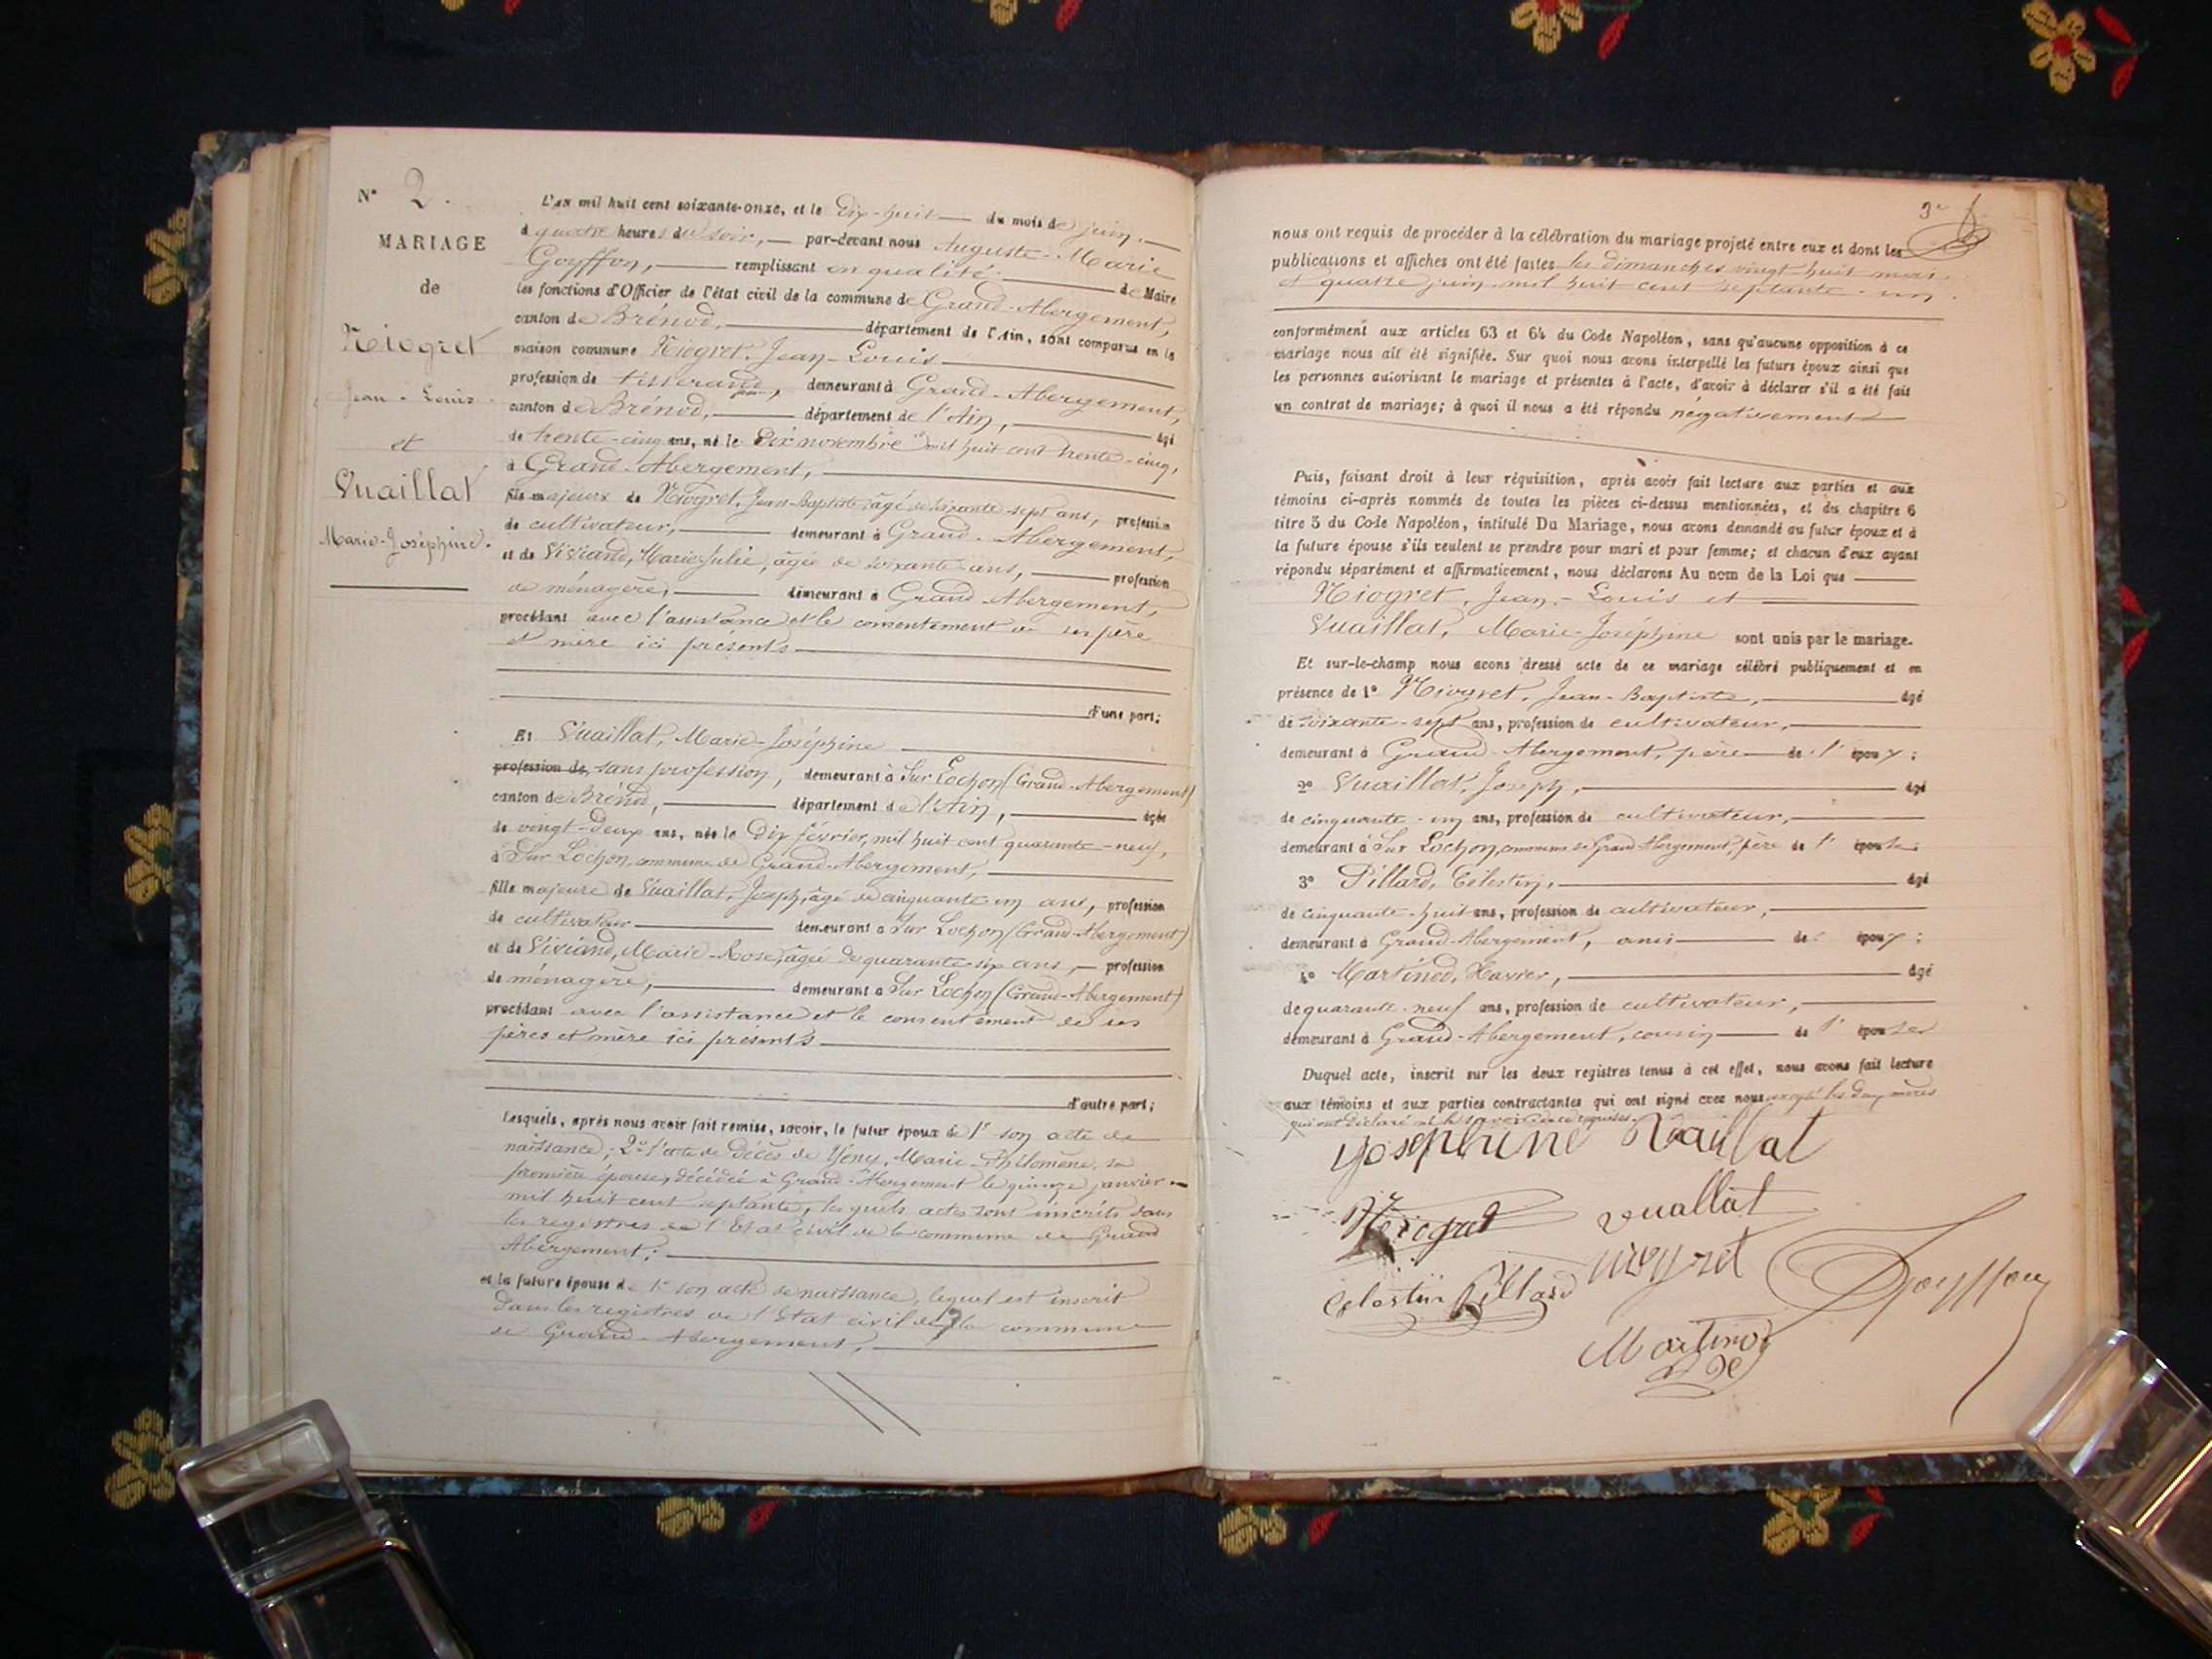 N° 2.
MARIAGE
de
Niogret
Jean-Louis
et
Vuaillat
Marie-Joséphine.
L'an mil huit cent soixante-onze, et le dix-huit du mois de juin,
à quatre heures du soir, par-devant nous Auguste-Marie
Goyffon, remplissant en qualité de Maire
les fonctions d'Officier de l'état civil de la commune de Grand-Abergement,
canton de Brénod, département de l'Ain, sont comparus en la
maison commune Niogret, Jean-Louis
profession de tisserand, demeurant à Grand-Abergement,
canton de Brénod, département de l'Ain, âgé
de trente-cinq ans, né le dix novembre mil huit cent trente-cinq,
à Grand-Abergement,
fils majeur de Niogret, Jean-Baptiste, âgé de soixante-sept ans, profession
de cultivateur, demeurant à Grand-Abergement,
et de Viviand, Marie-Julie, âgée de soixante ans, profession
de ménagère, demeurant à Grand-Abergement,
procédant avec l'assistance et le consentement de ses père
et mère ici présents
d'une part;
Et Vuaillat, Marie-Joséphine
profession de sans profession, demeurant à Sur Lochon (Grand-Abergement)
canton de Brénod, département de l'Ain, âgée
de vingt-deux ans, née le dix février, mil huit cent quarante-neuf,
à Sur Lochon, commune de Grand-Abergement,
fille majeure de Vuaillat, Joseph, âgé de cinquante-un ans, profession
de cultivateur demeurant à Sur Lochon (Grand-Abergement)
et de Viviand, Marie-Rose, âgée de quarante-six ans, profession
de ménagère, demeurant à Sur Lochon (Grand-Abergement)
procédant avec l'assistance et le consentement de ses
pères et mère ici présents
d'autre part;
Lesquels, après nous avoir fait remise, savoir, le futur époux de 1° son acte de
naissance; 2° l'acte de décès de Marie-Philomène, sa
première épouse, décédée à Grand-Abergement le quinze janvier
mil huit cent septante, lesquels actes sont inscrits dans
les registres de l'Etat civil de la commune de Grand
Abergement;
et la future épouse de 1° son acte de naissance, lequel est inscrit
dans les registres de l'Etat civil de la commune
de Grand-Abergement,
3e
nous ont requis de procéder à la célébration du mariage projeté entre eux et dont les
publications et affiches ont été faites les dimanches vingt-huit mai
et quatre juin mil huit cent septante-un.
conformément aux articles 63 et 64 du Code Napoléon, sans qu'aucune opposition à ce
mariage nous ait été signifiée. Sur quoi nous avons interpellé les futurs époux ainsi que
les personnes autorisant le mariage et présentes à l'acte, d'avoir à déclarer s'il a été fait
un contrat de mariage; à quoi il nous a été répondu négativement
Puis, faisant droit à leur réquisition, après avoir fait lecture aux parties et aux
témoins ci-après nommés de toutes les pièces ci-dessus mentionnées, et du chapitre 6
titre 5 du Code Napoléon, intitulé Du Mariage, nous avons demandé au futur époux et à
la future épouse s'ils veulent se prendre pour mari et pour femme; et chacun d'eux ayant
répondu séparément et affirmativement, nous déclarons Au nom de la Loi que
Niogret, Jean-Louis et
Vuaillat, Marie-Joséphine sont unis par le mariage.
Et sur-le-champ nous avons dressé acte de ce mariage célébré publiquement et en
présence de 1° Niogret, Jean-Baptiste, âgé
de soixante-sept ans, profession de cultivateur,
demeurant à Grand-Abergement, père de l'époux;
2° Vuaillat, Joseph, âgé
de cinquante-un ans, profession de cultivateur,
demeurant à Sur Lochon, commune de Grand-Abergement, père de l'épouse;
3° Pillard, Célestin, âgé
de cinquante-huit ans, profession de cultivateur,
demeurant à Grand-Abergement, ami de époux;
4° Martinod, Xavier, âgé
de quarante-neuf ans, profession de cultivateur,
demeurant à Grand-Abergement, cousin de l'épouse
Duquel acte, inscrit sur les deux registres tenus à cet effet, nous avons fait lecture
aux témoins et aux parties contractantes qui ont signé avec nous excepté les deux mères
qui ont déclaré ne le savoir de ce requises.
Josephine Vuaillat
Niogret vuallat
niogret
Celestin Pillard
Goyffon
Martinod X